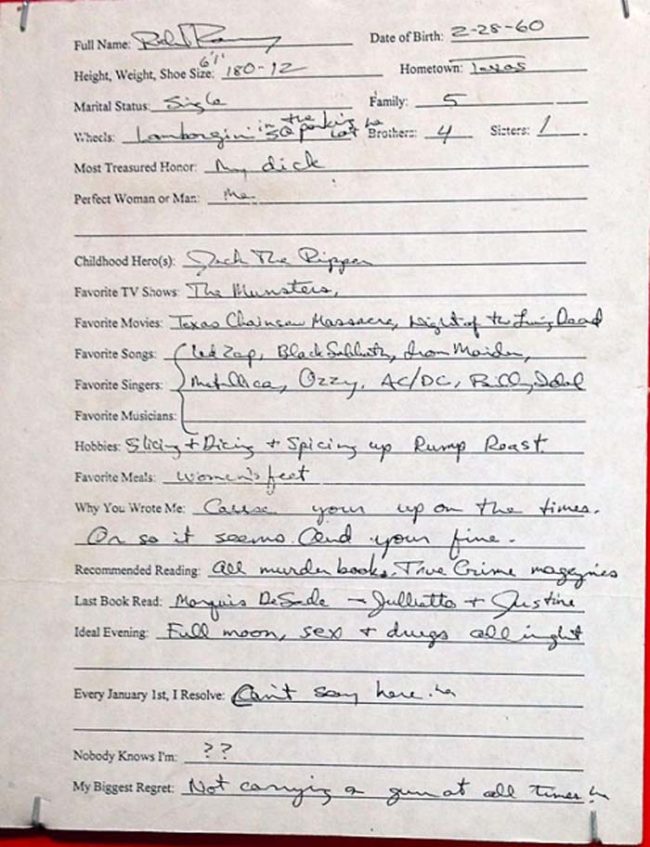 Full Name:
Date of Birth: 2-28-60
Height, Weight, Shoe Size: 6'1" 180-12 Hometown: Texas
Marital Status: Single Family: 5
Wheels: Lamborgin in the SQ parking lot ha Brothers: 4 Sisters: 1
Most Treasured Honor: My dick
Perfect Woman or Man: Me.
Childhood Hero(s): Jack The Ripper
Favorite TV Shows: The Munsters,
Favorite Movies: Texas Chainsaw Massacre, Night of the Living Dead
Favorite Songs: Led Zap, Black Sabbath, Iron Maiden,
Favorite Singers: Metallica, Ozzy, AC/DC, Billy Idol
Favorite Musicians:
Hobbies: Slicing + Dicing + Spicing up Rump Roast.
Favorite Meals: Women's feet
Why You Wrote Me: Cause your up on the times.
Or so it seems. And your fine.
Recommended Reading: All murder books. True Crime magazines
Last Book Read: Marquis DeSade - Jullietta + Justine
Ideal Evening: Full moon, sex + drugs all night
Every January 1st, I Resolve: Can't say here. ha
Nobody Knows I'm: ??
My Biggest Regret: Not carrying a gun at all times! ha